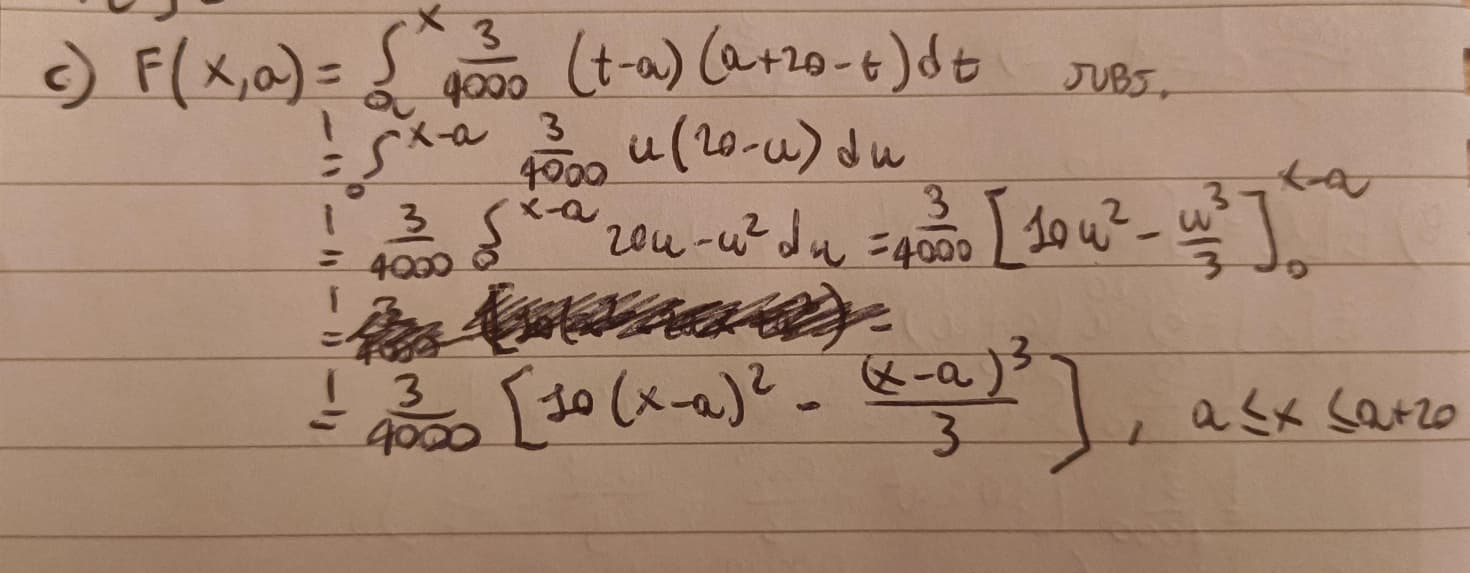 c) F(x,a) = ∫_a^x 3/4000 (t-a)(a+20-t)dt SUBS.
= ∫_0^{x-a} 3/4000 u(20-u) du
= 3/4000 ∫_0^{x-a} 20u-u² du = 3/4000 [10u² - u³/3]_0^{x-a}
=
= 3/4000 [10(x-a)² - (x-a)³/3], a≤x≤a+20